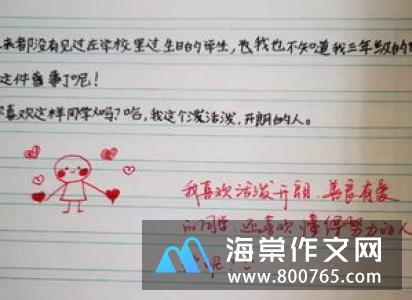 来都没有见过在学校里过生日的学生,也我也不知道我三年级的
这件蠢事了呢!
喜欢这样同学吗?哈,我这个泼活泼,开朗的人。
我喜欢活泼开朗、善良有爱
的同学,还喜欢懂得努力的人
海棠作文网
www.800765.com